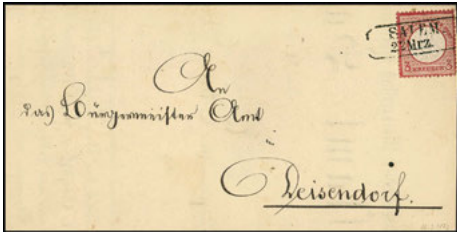 SALEM
2 Mrz.
3 3
An
das Bürgermeister Amt
Deisendorf.